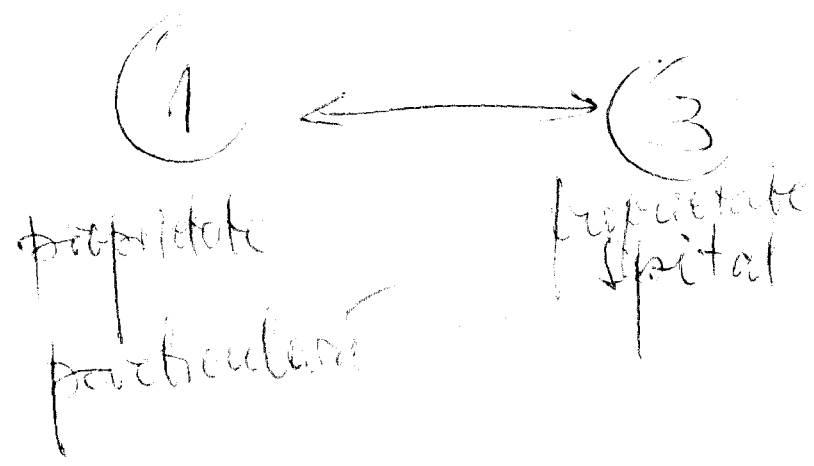 1
3
proprietate
particulară
proprietate
spital